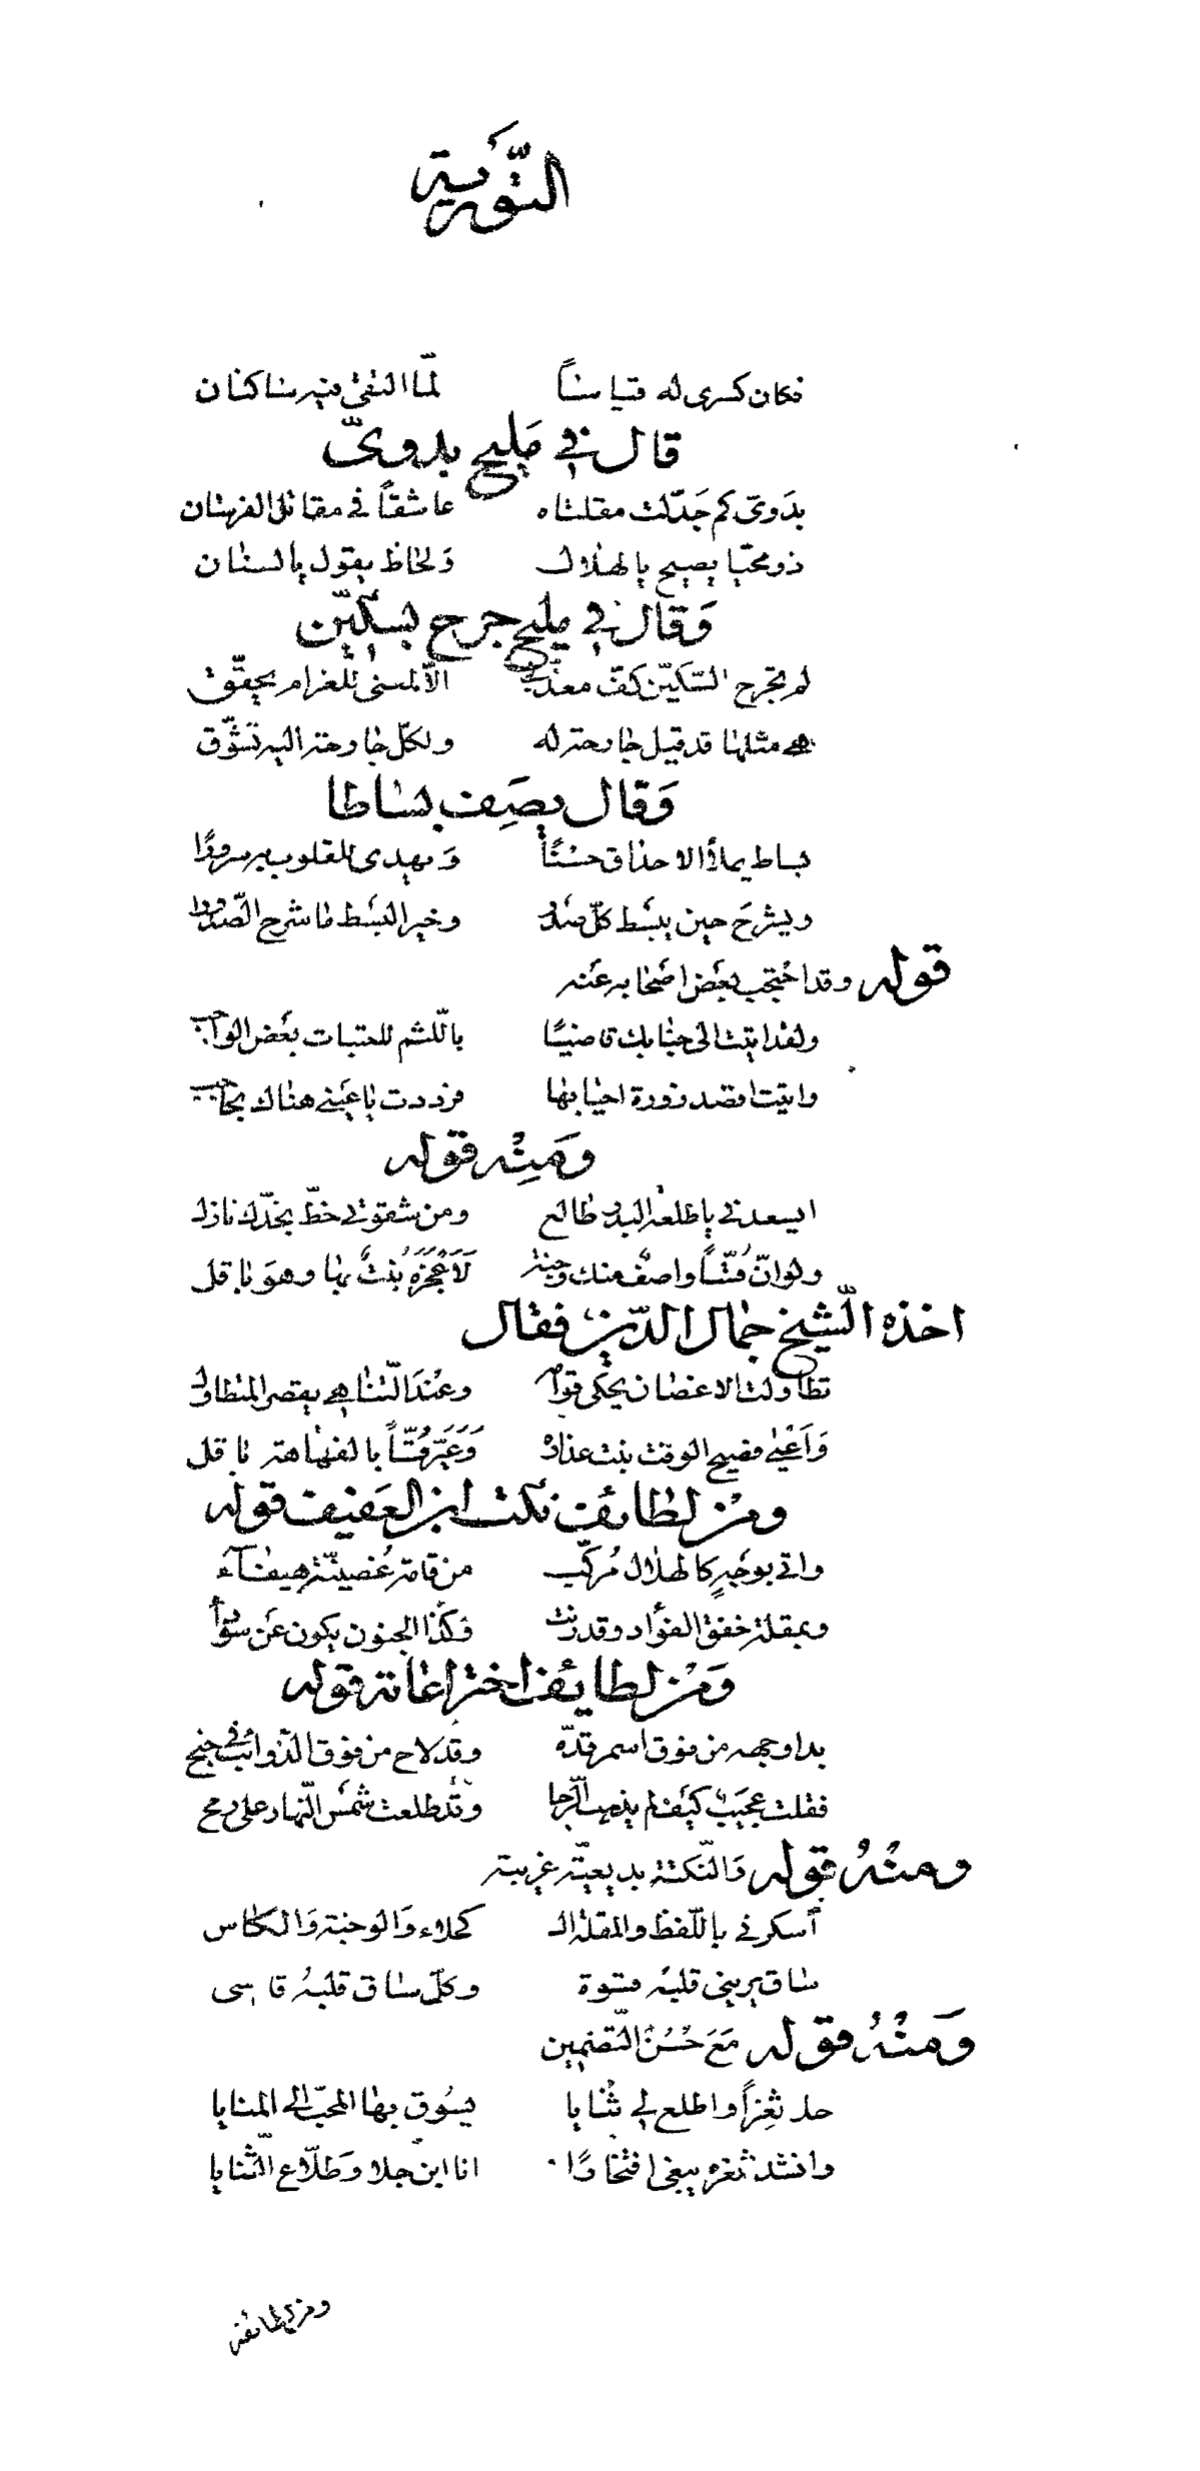 التّورية
فكان كسرى له قياسًا لمّا التقى فيه ساكنان
قال في مليح بدويّ
بدَوىّ كم جَدّلت مقلتاه عاشقًا في مقاتل الفرسان
ذو محيّا يصيح يا لهلال وَلحاظ يقول يا لسنان
وَقال في مليح جرح بسكّين
لم تجرح السّكّين كفّ معذّبي الاّ لمعنى للغرام يحقّق
هي مثلها قد قيل جارحة له ولكلّ جارحة اليه تشوّق
وَقال يصَِف بساطا
بساط يملأ الاحداق حسنًا وَيهدى للقلوب به سرورًا
ويشرحَ حين يبسَط كلّ صدر وخير البسَط ما شرح الصّدورا
قوله وقد احتجب بعَض اصحَابه عَنه
ولقد اتيت الى جنابك قاضيًا باللّثم للعتبات بعَض الواجب
واتيت اقصد زورة احيا بها فرددت يا عيَني هناك بحاجب
وَمِنْه قوله
ايسعدني يا طلعة البدر طالع ومن شقوتي خطّ بخدّك نازل
ولو انّ قُسّاً واصفٌ منك وجنة لَاَعْجَزَهُ نبتٌ بها وهوَ باقل
اخذه الشّيخ جمال الدّين فقال
تطاولت الاغصان يحكى قوامه وعنْدَ التّناهي يقصر المتطاول
وَاَعْيىٰ فصيح الوقت نبت عذاره وَعَيَّرَ قُسّاً بالفهاهة باقل
ومنْ لطائف نكت ابن العَفيف قوله
وافى بوجَهٍ كالهلال مُركّب من قامة غُصنيّة هيفآء
وبمقلة خفق الفؤاد وقد رنت وكذا الجنون يكون عَن سودآء
وَمنْ لطايف اختراعاته قوله
بدا وجهه من فوق اسمر قدّه وقد لاح من فوق الذّوائب في جنح
فقلت عجيَب كيَف لم يذهب الدّجا وقد طلعت شمَس النّهار على رمح
ومنْهُ قوله وَالنّكتة بديعيّة غريبة
أسكرني باللّفظ والمقلة ال كحلاء وَالوجنة وَالكاس
ساق يريني قلبُه قسوة وكلّ ساق قلبُهُ قاسى
وَمنْهُ قوله مَعَ حْسُن التّضمين
حلا ثغرًا واطلع لي ثنايا يسُوق بها المحبّ الى المنايا
وانشد ثغره يبغى افتخارًا انا ابن جلا وَطلّاع الثّنايا
ومن لطائفه